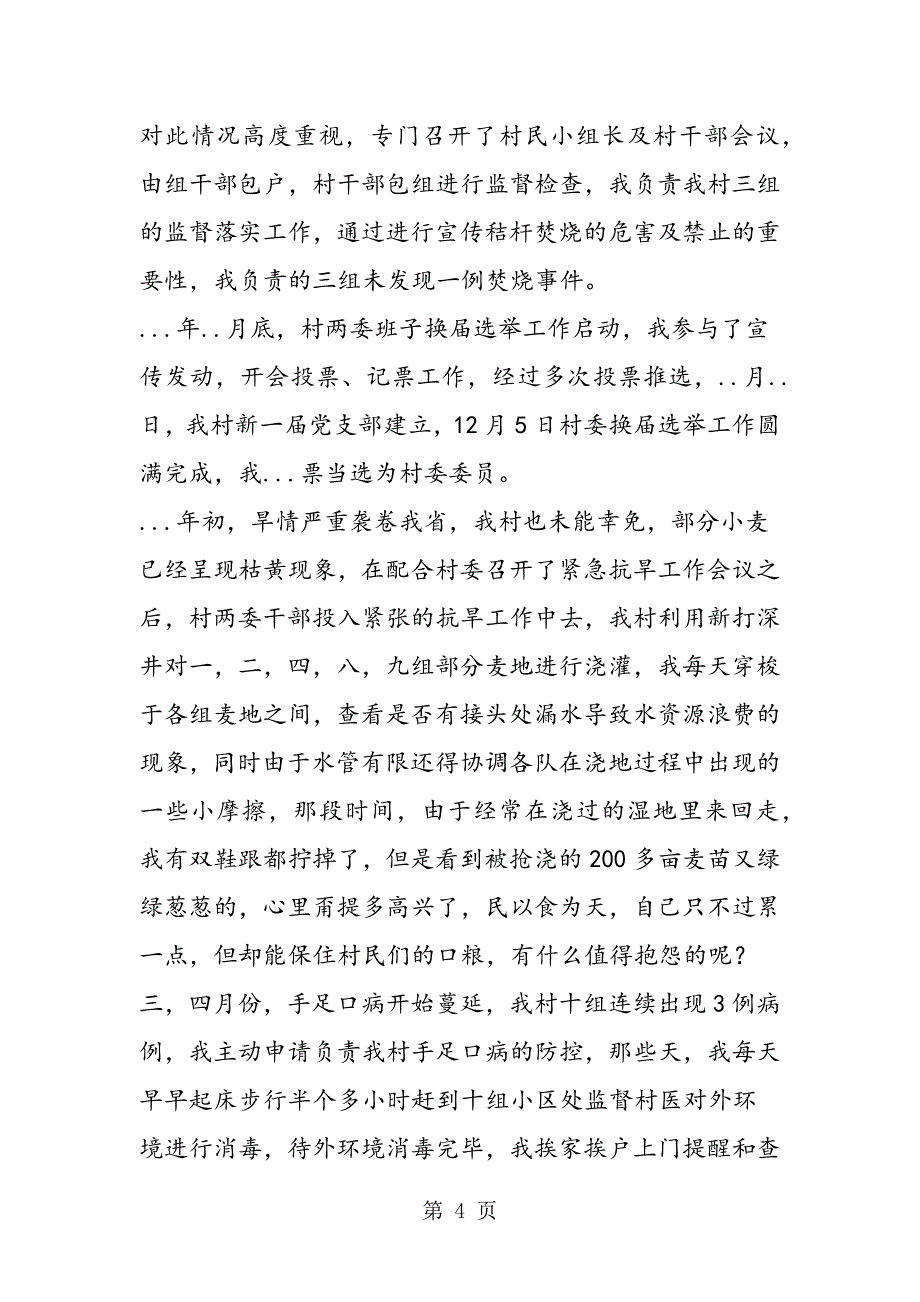 对此情况高度重视，专门召开了村民小组长及村干部会议，
由组干部包户，村干部包组进行监督检查，我负责我村三组
的监督落实工作，通过进行宣传秸杆焚烧的危害及禁止的重
要性，我负责的三组未发现一例焚烧事件。
...年..月底，村两委班子换届选举工作启动，我参与了宣
传发动，开会投票、记票工作，经过多次投票推选，..月..
日，我村新一届党支部建立，12月5日村委换届选举工作圆
满完成，我...票当选为村委委员。
...年初，旱情严重袭卷我省，我村也未能幸免，部分小麦
已经呈现枯黄现象，在配合村委召开了紧急抗旱工作会议之
后，村两委干部投入紧张的抗旱工作中去，我村利用新打深
井对一，二，四，八，九组部分麦地进行浇灌，我每天穿梭
于各组麦地之间，查看是否有接头处漏水导致水资源浪费的
现象，同时由于水管有限还得协调各队在浇地过程中出现的
一些小摩擦，那段时间，由于经常在浇过的湿地里来回走，
我有双鞋跟都拧掉了，但是看到被抢浇的200多亩麦苗又绿
绿葱葱的，心里甭提多高兴了，民以食为天，自己只不过累
一点，但却能保住村民们的口粮，有什么值得抱怨的呢？
三，四月份，手足口病开始蔓延，我村十组连续出现3例病
例，我主动申请负责我村手足口病的防控，那些天，我每天
早早起床步行半个多小时赶到十组小区处监督村医对外环
境进行消毒，待外环境消毒完毕，我挨家挨户上门提醒和查
第 4 页